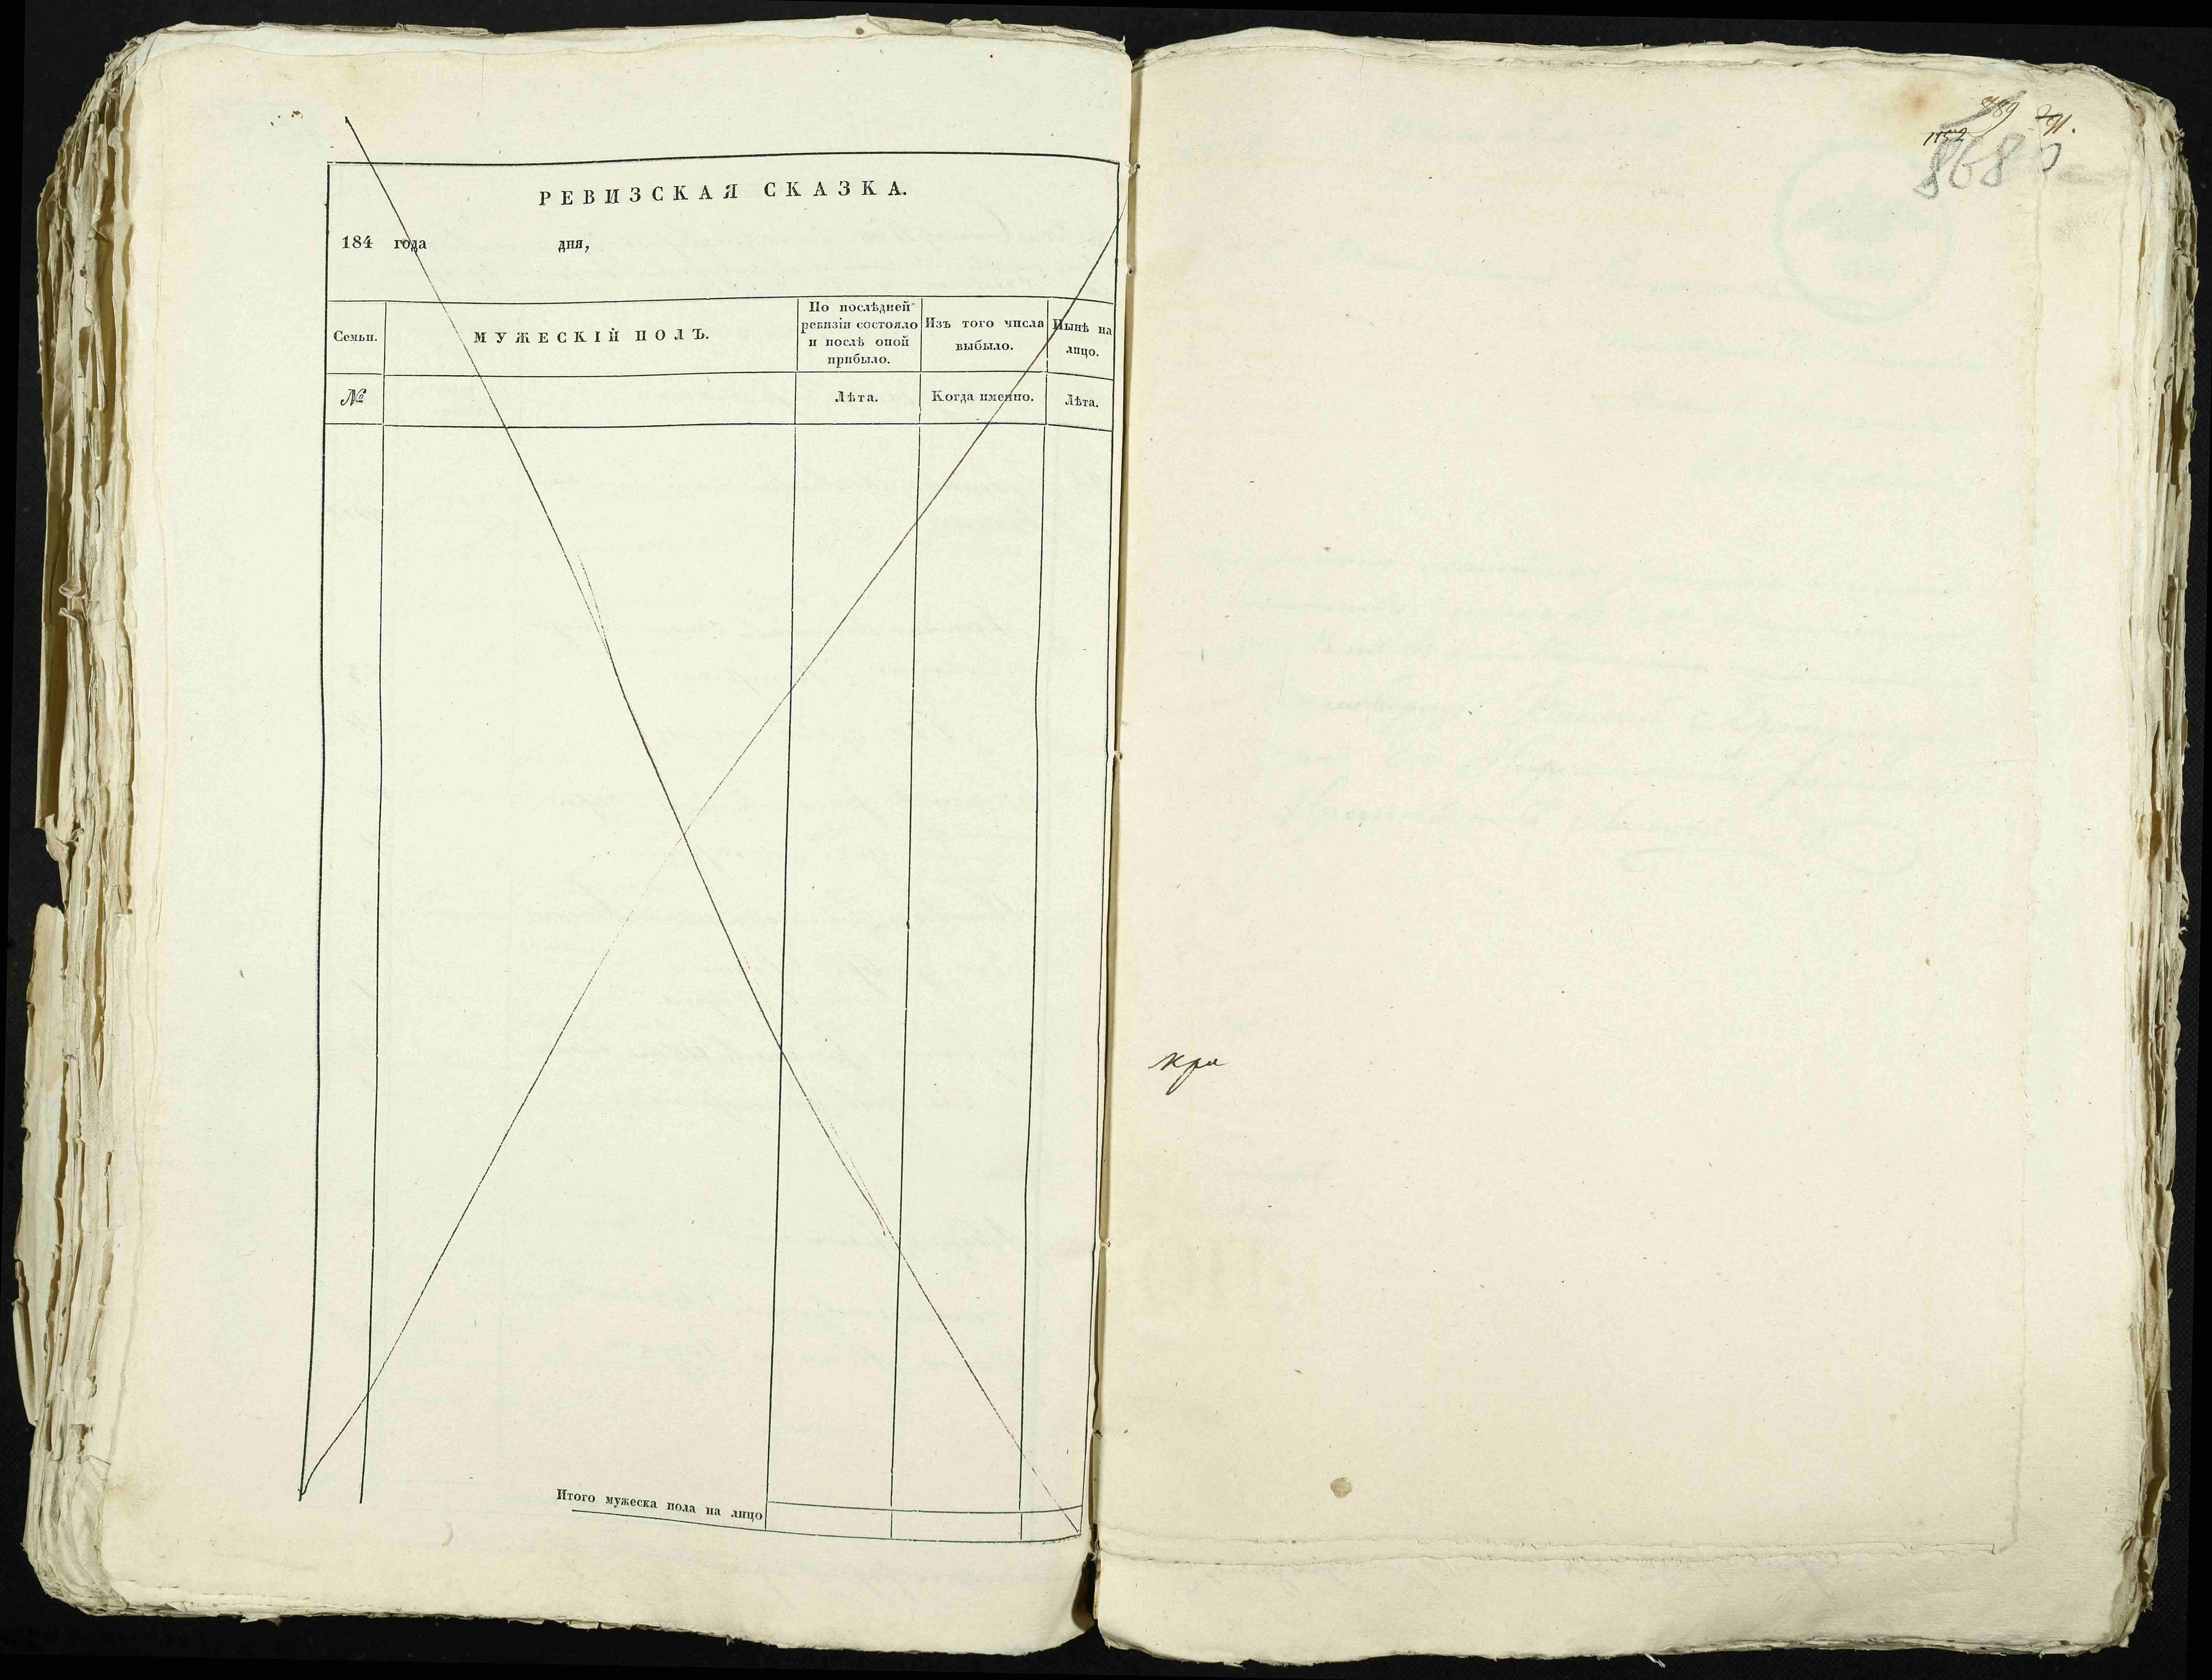 РЕВИЗСКАЯ СКАЗКА.
184 года дня,
Семьи.
МУЖЕСКІЙ ПОЛЪ.
По послѣдней ревизіи состояло и послѣ оной прибыло.
Изъ того числа выбыло.
Нынѣ на лицо.
№
Лѣта.
Когда именно.
Лѣта.
Итого мужеска пола на лицо
868
кри